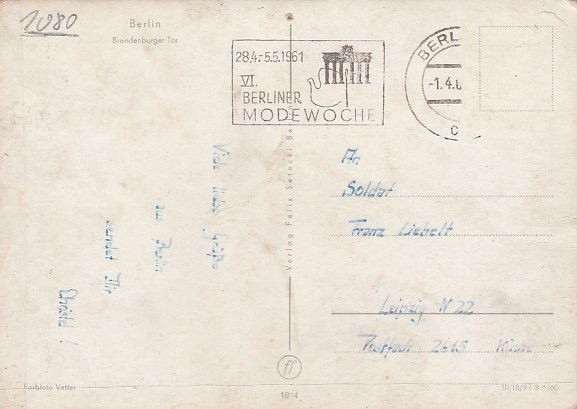 1080
Berlin
Brandenburger Tor
28.4.-5.5.1961
VI.
BERLINER
MODEWOCHE
BERL
-1.4.6
C
Viele liebe Grüße
aus Berlin
sendet Dir
Christel!
Verlag Felix Setecki, Be
An
Soldat
Franz Liebelt
Leipzig N 22
Postfach 2615
Farbfoto Vetter
ff
1814
III/18/97